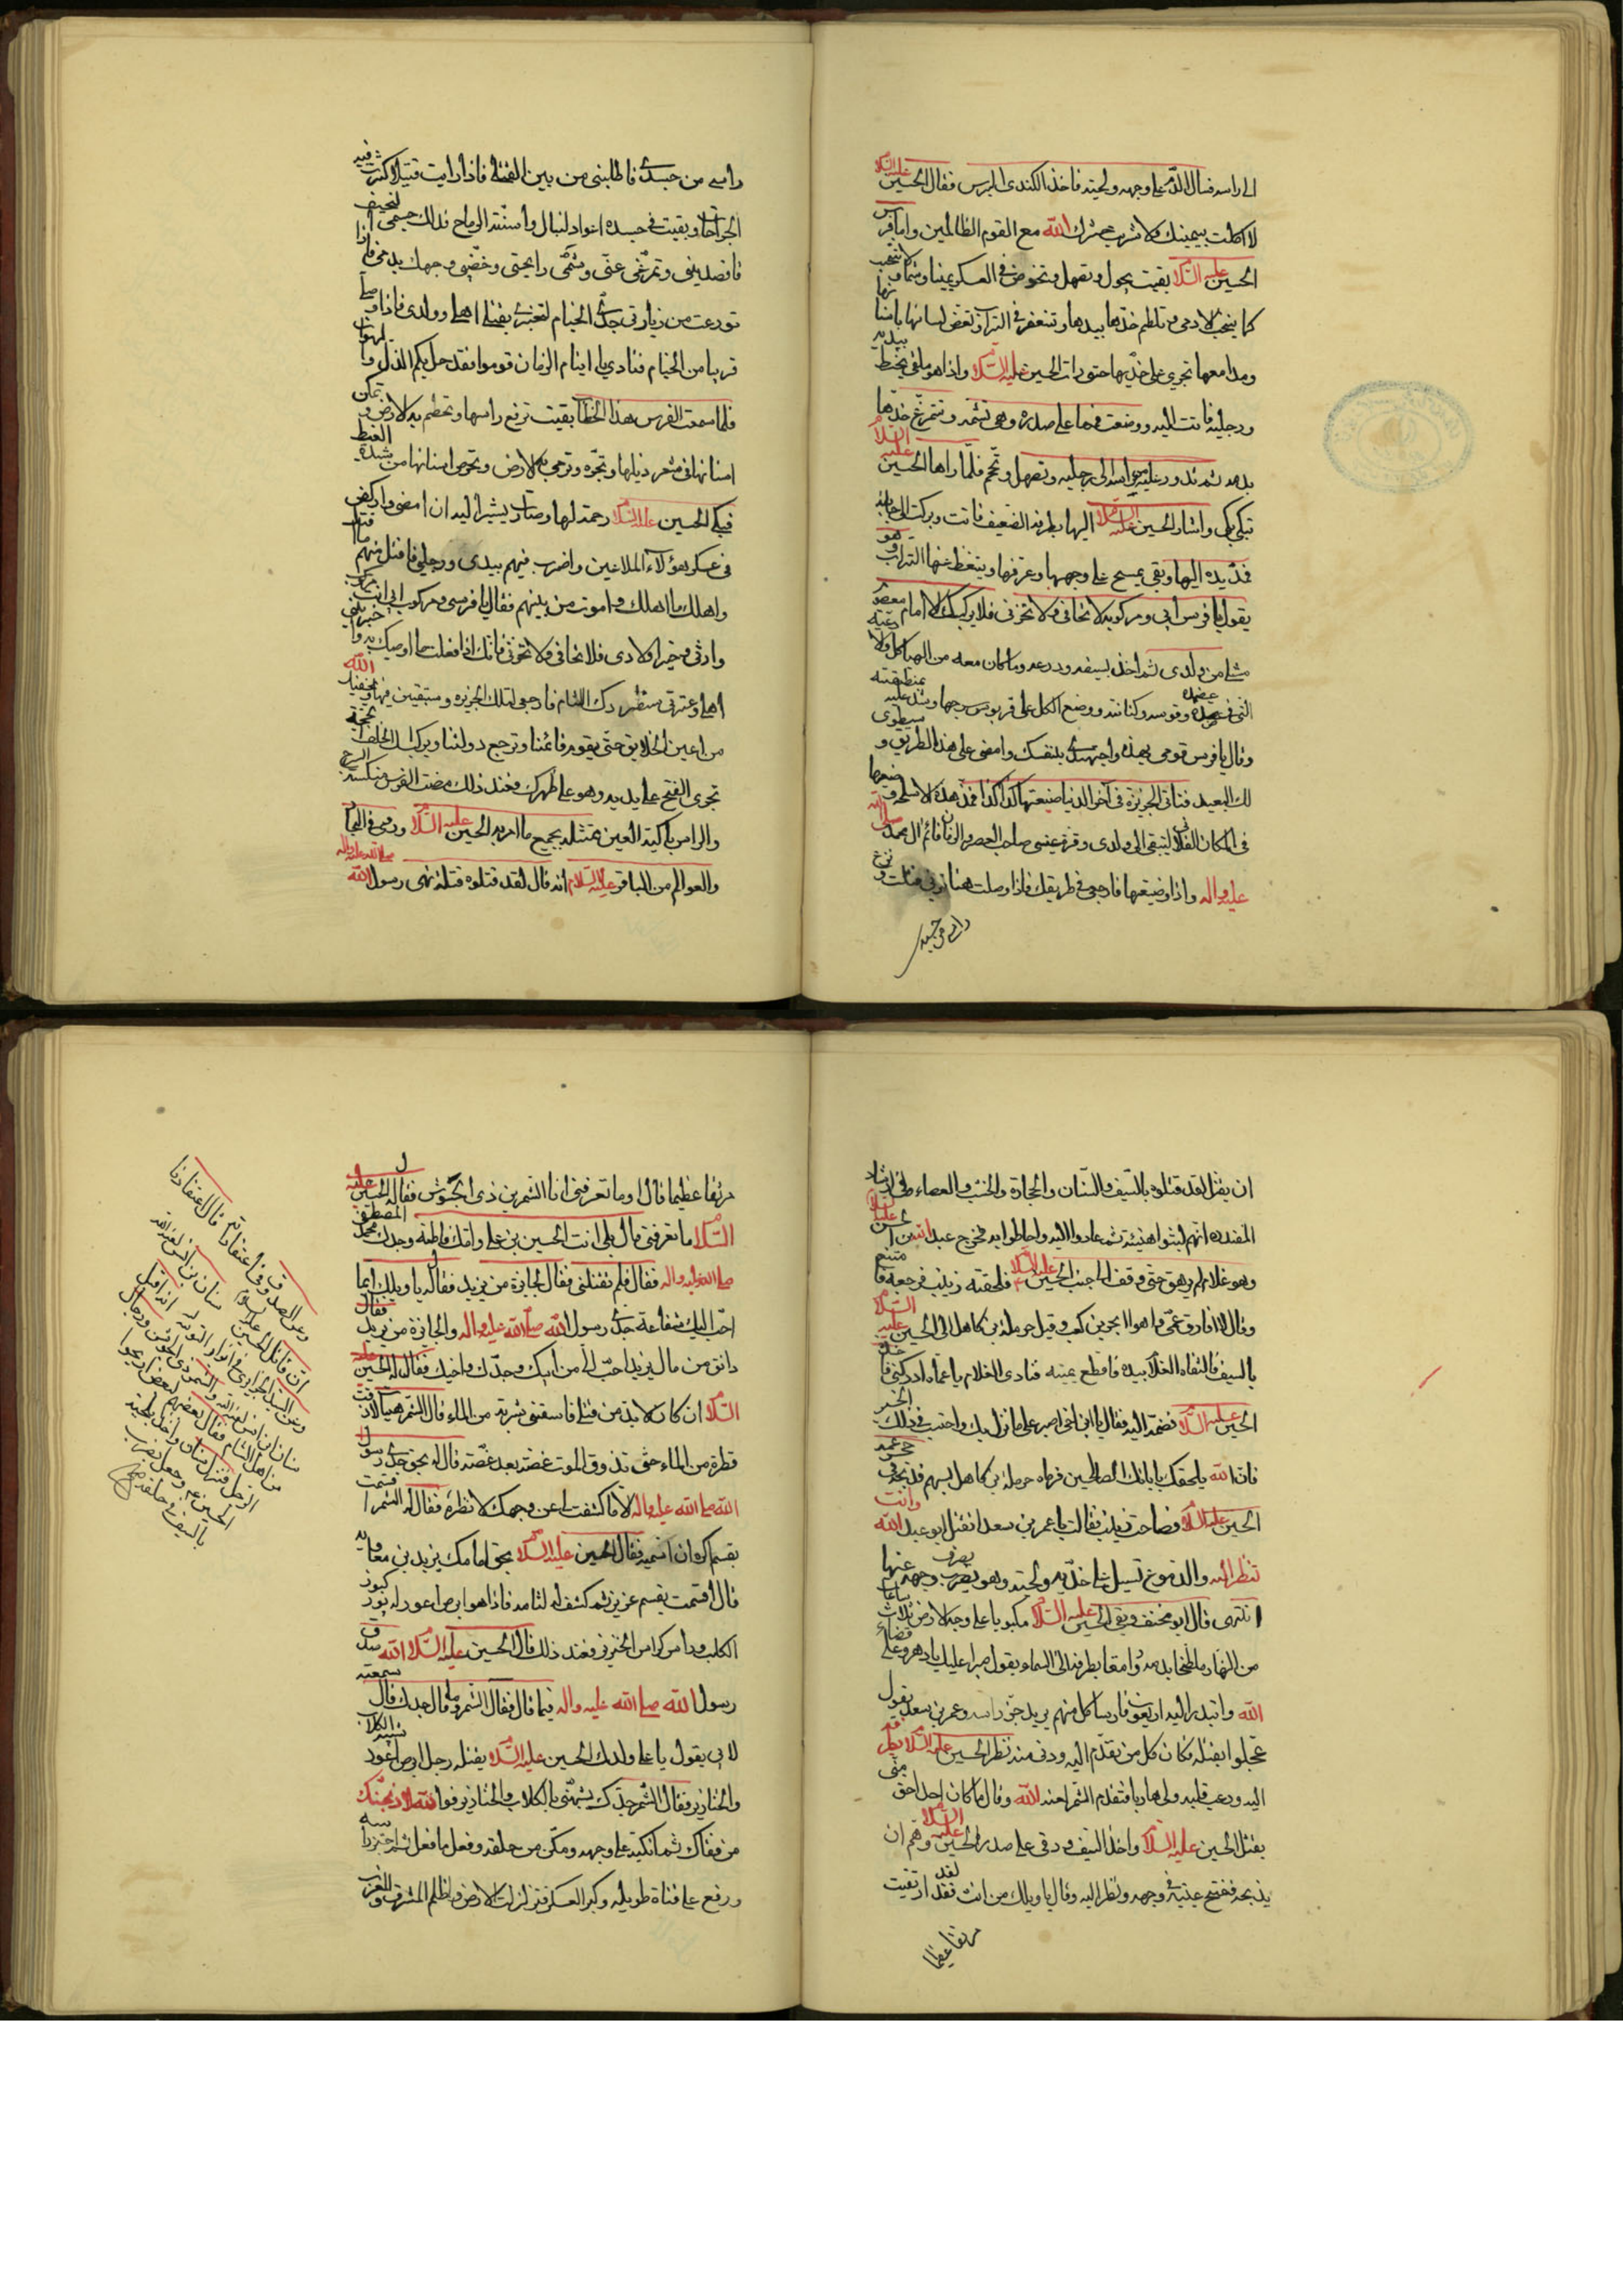 الى راسه فسال الدم على وجهه ولحيته فاخذ الكندى البرس فقال الحسين عليه السلام
لا اكلت بيمينك ولا شربت وحشرك الله مع القوم الظالمين واما فرس
الحسين عليه السلام بقيت تجول وتصهل وتخوض فى العسكر يمينا وشمالا وتنتحب
كما ينتحب الادمى وتلطم خدها بيدها وتتعفر فى التراب وتعض لسانها باسنانها
ومدامعها تجرى على خديها حتى رات الحسين عليه السلام واذا هو ملقى يخبط بيديه
ورجليه فاتت اليه ووضعت فمها على صدره وهى تشمه وتتمرغ خديها
بدمه ثم تدور عليه من راسه الى رجليه وتصهل وتحمحم فلما راها الحسين عليه السلام
تبكى بكى واشار الحسين عليه السلام اليها بطرفه الضعيف فاتت وبركت الى جانبه
فمد يده اليها وبقى يمسح على وجهها وعرفها وينفض عنها التراب وهو
يقول يا فرس ابى ومركوبه لا تخافى ولا تحزنى فلا يركبك الا امام معصوم
مثلى من ولدى ثم اخذ بسيفه ودرعه وما كان معه من الهياكل والادعية
التى فى عضده وقوسه وكنانته ووضع الكل على قربوس سرجها وشد عليه بمنطقته
وقال يا فرس قومى بهذه واجهدى بنفسك وامضى على هذا الطريق وسيطوى
لك البعيد فتاتى الجزيرة فى اخر الدنيا صنيعتها كذا كذا فخذ هذه الاسلحة وضعها
فى المكان الفلانى لتبقى الى ولدى وقرة عينى صاحب العصر والزمان قائم ال محمد صلى الله
عليه واله واذا وضيعتها فارجعى فى طريقك فاذا وصلت هنا ترينى قتلت ونزع
راسى من جسدى
راسى من جسدى فاطلبنى من بين القتلى فاذا رايت قتيلا كثرت فيه
الجراحات وبقيت فى جسده اعواد النبال واسنة الرماح فذلك جسمى النحيف
فاقصدينى وتمرغى عنى وشمى رايحتى وخضبى وجهك بدمى فاذا
تودعت من زيارتى جدى الخيام لتخبرى بقتلى اهلى وولدى فاذا وصلت
قربا من الخيام فنادى يا ايتام الزمان قوموا فقد حل بكم الذل والهوان
فلما سمعت الفرس هذا الخطاب بقيت ترفع راسها وتحطم به الارض وتمكن
اسنانها فى شعر ذيلها وتجره وترمى به الارض وتحرص اسنانها من شدة الغيظ
فبكى الحسين عليه السلام رحمة لها وصار يشير اليه ان امضى واركض
فى عسكر هؤلاء الملاعين واضرب فيهم بيدى ورجلى فاقتل منهم ما اقتل
واهلك ما اهلك واموت من بينهم فقال يا فرسى ومركوب ابى انت مركب
وارثى وخيرا ولادى فلا تخافى ولا تحزنى فانك اذا فعلت ما اوصيك به واخبرتى
اهلى وعترتى
من اعين الخلايق حتى يقوم قائمنا وترجع دولتنا ويركبك الخلف الحجة
تجرى الفتح على يديه وهو على ظهرك فعند ذلك مضت الفرس منكسة السرج
والراس باكية العين ممتثلة بجميع ما امر به الحسين عليه السلام وروى فى البحار
والعوالم من الباقر عليه السلام انه قال لقد قتلوه قتلة نهى رسول الله صلى الله عليه واله
ان يقتل لقد قتلوه بالسيف والسنان والحجارة والخشب والعصاء وفى ارشاد
المفيد انهم لبثوا هنيئة ثم عادوا اليه واحاطوا به فخرج عبدالله بن الحسن عليه السلام
وهو غلام لم يرهق حتى وقف الى جنب الحسين عليه السلام فلحقته زينب فرجعه فامتنع
وقال لا افارق عمى فاهوا ابجر بن كعب وقيل حرملة بن كاهل الى الحسين عليه السلام
بالسيف فالتقاه الغلام بيده فاقطع يمينه فنادى الغلام يا عماه ادركنى فاخذه
الحسين عليه السلام فضمه اليه فقال يا ابن اخى اصبر على ما نزل بك واحتسب فى ذلك الخير
فان الله يلحقك بابائك الصالحين فرماه حرملة بن كاهل بسهم فذبحه فى حجر عمه
الحسين عليه السلام فصاحت زينب فقالت يا عمر بن سعد ايقتل ابو عبدالله وانت
تنظر اليه والدموع تسيل على خديه ولحيته وهو يصرف وجهه عنها
انتهى قال ابو مخنف وبقى الحسين عليه السلام مكبوبا على وجه الارض ثلاث ساعات
من النهار ملطخا بدمه رامقا بطرفه الى السماء ويقول صبرا عليك يا دهر وعلى قضاء
الله وابتدر اليه اربعون فارسا كل منهم يريد حز راسه وعمر بن سعد يقول
عجلوا بقتله فكان كل من تقدم اليه ودنى منه نظر الحسين عليه السلام نظر
اليه ورعب قلبه ولى هاربا فتقدم الشمر لعنه الله وقال ما كان احد احق منى
بقتل الحسين عليه السلام واخذ السيف ورقى على صدر الحسين عليه السلام وهم ان
يذبحه ففتح عينيه فى وجهه ونظر اليه وقال يا ويلك من انت فقد ارتقيت
مرتقا عظيما
مرتقا عظيما قال اوما تعرفنى انا الشمر بن ذى الجوشن فقال له الحسين عليه
السلام ما تعرفنى قال بلى انت الحسين بن على وامك فاطمة وجدك محمد المصطفى
صلى الله عليه واله فقال فلم تقتلنى فقال للجايزة من يزيد فقال له يا ويلك ايما
احب اليك شفاعة جدى رسول الله صلى الله عليه واله والجايزة من يزيد فقال
دانق من مال يزيد احب الى من ابيك وجدك واخيك فقال له الحسين عليه
السلام ان كان لا بد من قتلى فاسقنى شربة من الماء قال الشمر هيهات لاذقت
قطرة من الماء حتى تذوق الموت غصة بعد غصة قال له بحق جدى رسول
الله صلى الله عليه واله الا ما كشفت لى عن وجهك لانظره فقال له الشمر اقسمت
بقسم اكره ان اسميه فقال الحسين عليه السلام بحق امامك يزيد بن معاوية
قال اقسمت بقسم عزيز ثم كشف له لثامه فاذا هو ابرص اعور له بوز كبوز
الكلب وراس كراس الخنزير فعند ذلك قال الحسين عليه السلام الله صدق
رسول الله صلى الله عليه واله فيما قال فقال الشمر وما قال جدك قال سمعته
لابى يقول يا على ولدك الحسين عليه السلام يقتله رجل ابرص اعور شبيه الكلاب
والخنازير فقال الشمر جدك يشبهنى بالكلاب والخنازير فوالله لاذبحنك
من قفاك ثم انكبه على وجهه ومكن من حلقه وفعل ما فعل ثم احتز راسه
ورفع على قناة طويله وكبر العسكر فتزلزلت الارض واظلم المشرق والمغرب
وعن الصدوق فى اعتقاداته قال اعتقادنا
ان قاتل الحسين عليه السلام سنان بن انس لعنه الله
وعن السيد الجزايرى فى انوار النعمانيه انه اقبل
سنان بن انس لعنه الله والشمر ذى الجوشن ورجال
من اهل الشام فقال بعضهم لبعض اريحوا
الرجل فنزل سنان واخذ بلحية
الحسين وجعل يضرب
بالسيف حلقه